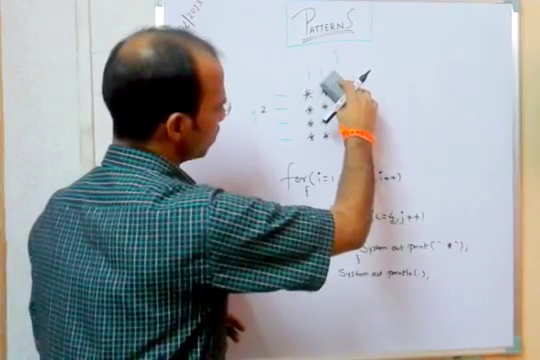 /2013
PATTERNS
j
2
* *
* *
* *
* *
for(i=1 i++)
{
<=4;j++)
System out print("*");
}
System out println();